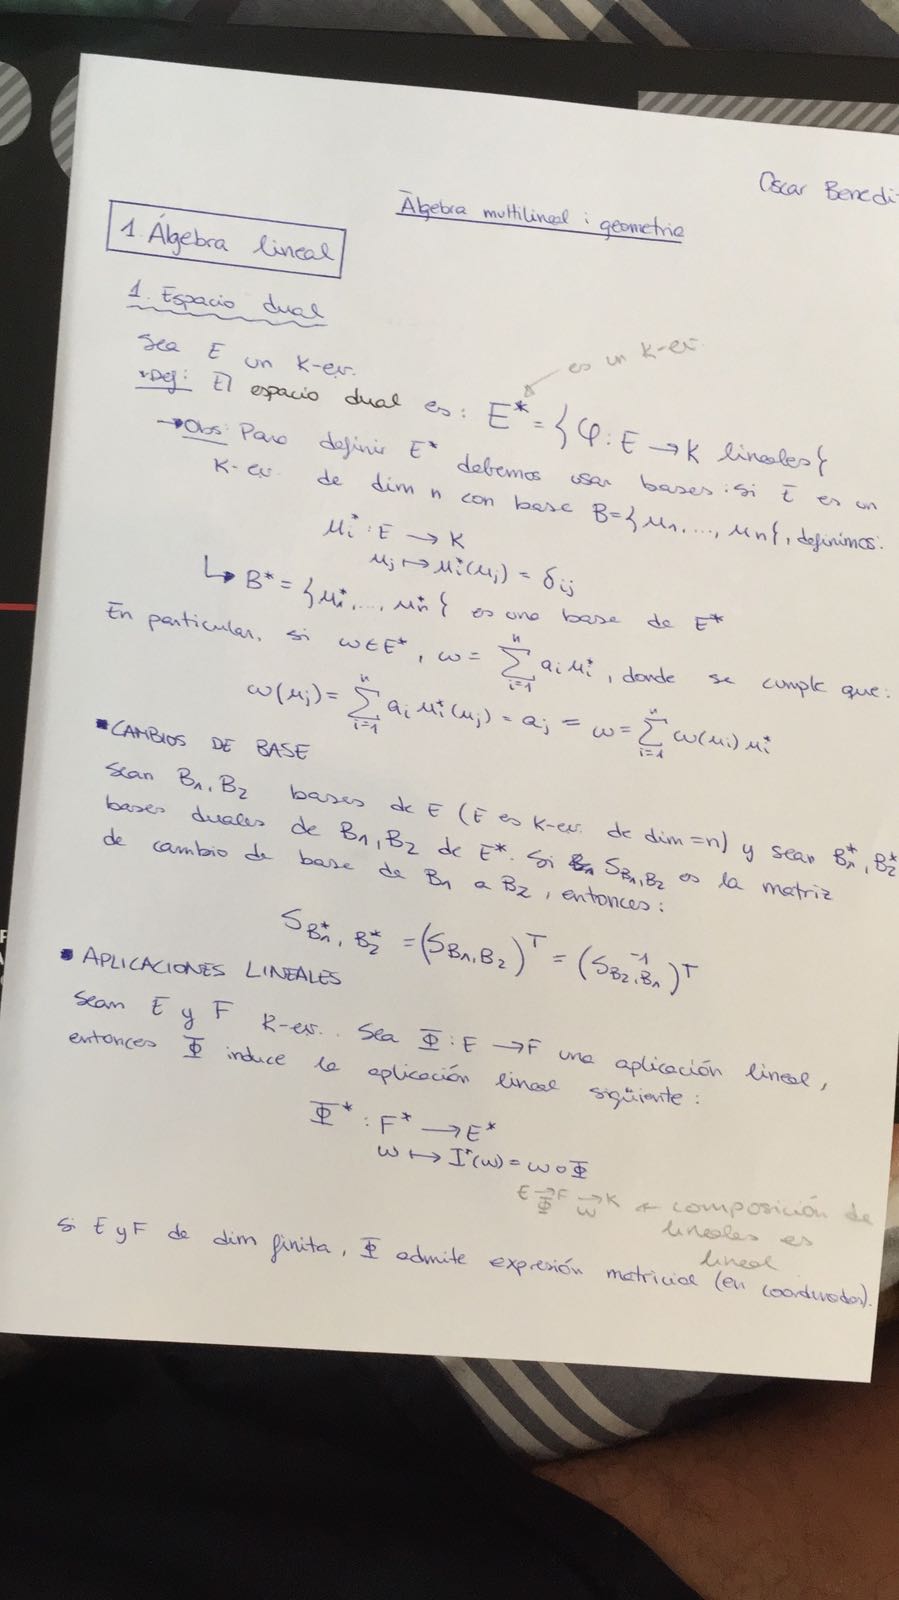 Oscar Benedi
Àlgebra multilineal i geometria
1. Álgebra lineal
1. Espacio dual
Sea E un K-ev.
es un K-ev.
*Def: El espacio dual es: E* = {φ: E → K lineales}
→Obs: Para definir E* debemos usar bases: si E es un
K-ev. de dim n con base B={u₁,..., uₙ}, definimos:
uᵢ* : E → K
uⱼ ↦ uᵢ*(uⱼ) = δᵢⱼ
↳ B* = {u₁*,..., uₙ*} es una base de E*
En particular, si ω∈E*, ω = ∑ᵢ₌₁ⁿ aᵢuᵢ*, donde se cumple que:
ω(uⱼ) = ∑ᵢ₌₁ⁿ aᵢ uᵢ*(uⱼ) = aⱼ = ω = ∑ᵢ₌₁ⁿ ω(uᵢ) uᵢ*
▪CAMBIOS DE BASE
Sean B₁, B₂ bases de E (E es K-ev. de dim = n) y sean B₁*, B₂*
bases duales de B₁, B₂ de E*. Si S_{B₁,B₂} es la matriz
de cambio de base de B₁ a B₂, entonces:
S_{B₁*, B₂*} = (S_{B₁,B₂})ᵀ = (S⁻¹_{B₂,B₁})ᵀ
▪ APLICACIONES LINEALES
Sean E y F K-ev.. Sea Φ : E → F una aplicación lineal,
entonces Φ induce la aplicación lineal sigüiente:
Φ* : F* → E*
ω ↦ I*(ω) = ω∘Φ
E →Φ F →ω K ← composición de
lineales es
lineal
Si E y F de dim finita, Φ admite expresión matricial (en coordenadas).